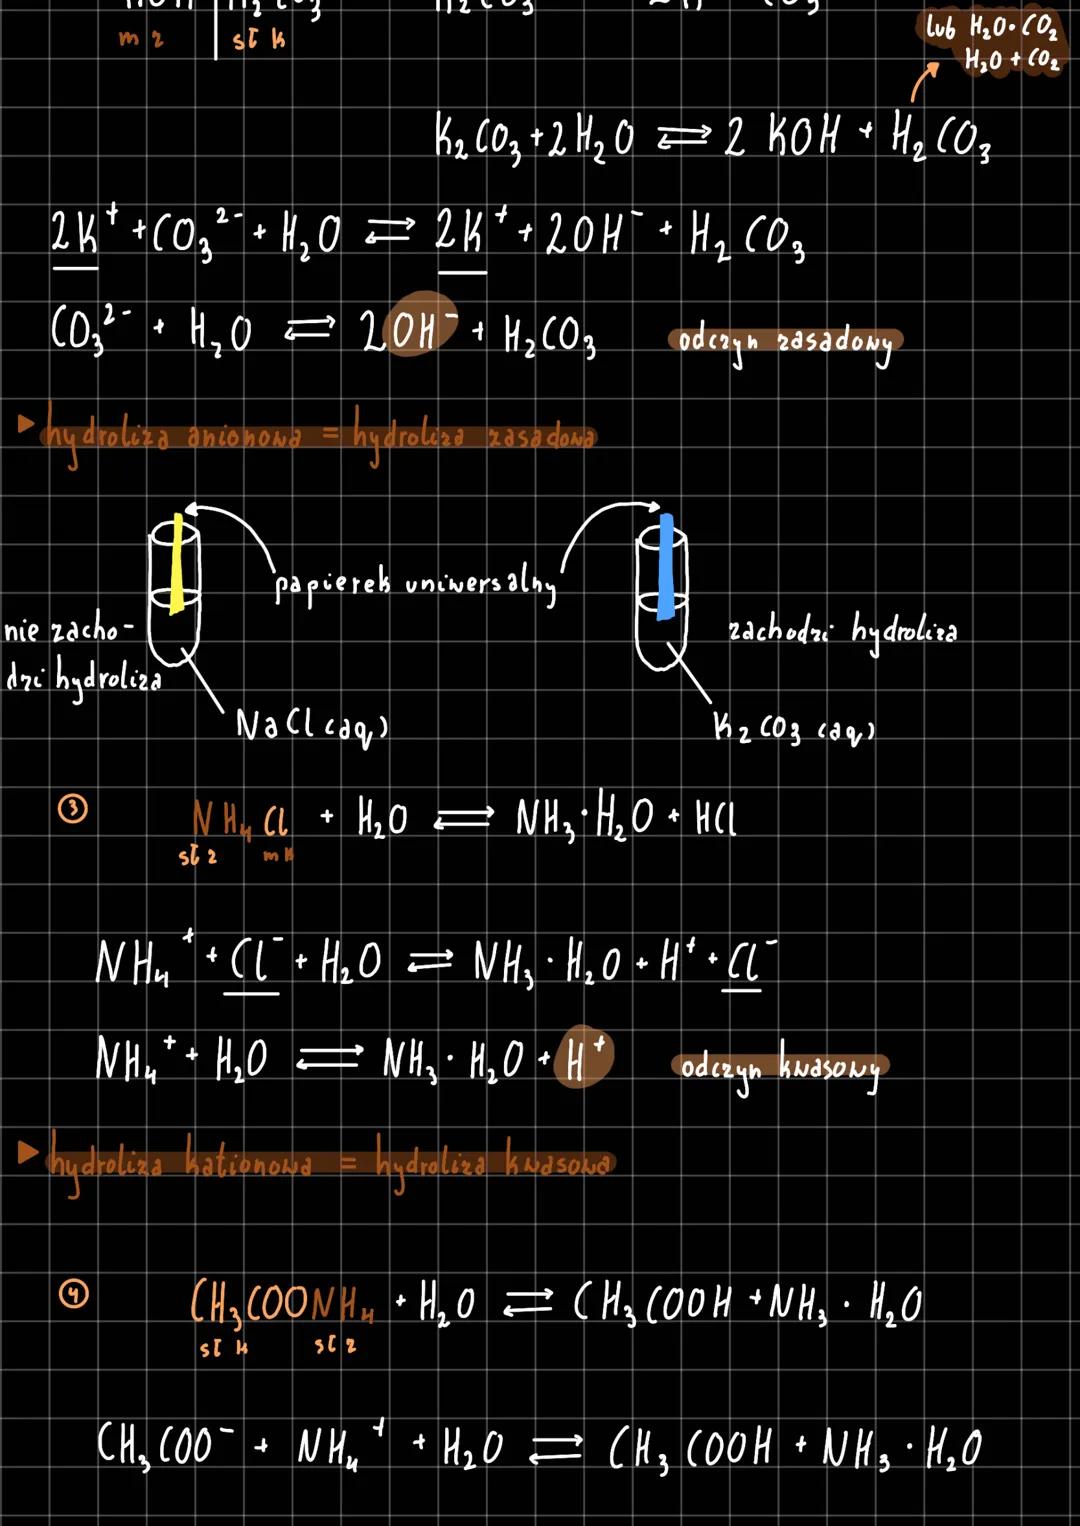 m z | sł k
lub H₂O·CO₂
H₂O + CO₂
K₂CO₃ + 2H₂O ⇌ 2 KOH + H₂CO₃
2K⁺ + CO₃²⁻ + H₂O ⇌ 2K⁺ + 2OH⁻ + H₂CO₃
CO₃²⁻ + H₂O ⇌ 2OH⁻ + H₂CO₃ odczyn zasadowy
▶ hydroliza anionowa = hydroliza zasadowa
papierek uniwersalny
nie zacho-
dzi hydroliza
zachodzi hydroliza
NaCl (aq)
K₂CO₃ (aq)
③ NH₄Cl + H₂O ⇌ NH₃·H₂O + HCl
sł z mk
NH₄⁺ + Cl⁻ + H₂O ⇌ NH₃·H₂O + H⁺ + Cl⁻
NH₄⁺ + H₂O ⇌ NH₃·H₂O + H⁺ odczyn kwasowy
▶ hydroliza kationowa = hydroliza kwasowa
④ CH₃COONH₄ + H₂O ⇌ CH₃COOH + NH₃·H₂O
sł k sł z
CH₃COO⁻ + NH₄⁺ + H₂O ⇌ CH₃COOH + NH₃·H₂O